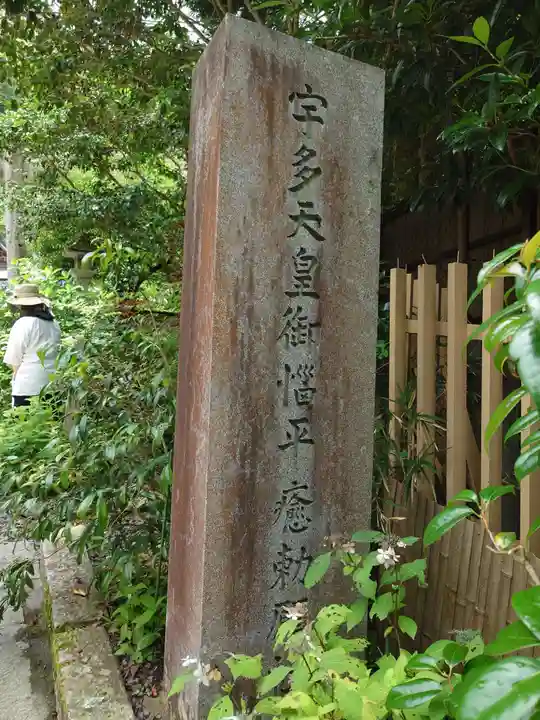 宇多天皇御悩平癒勅願